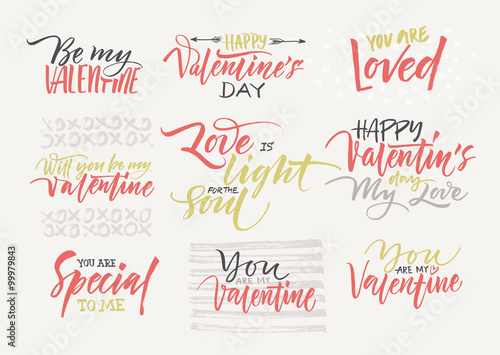 Be my
VALENTINE
HAPPY
Valentine's
DAY
YOU ARE
Loved
XOXOXOX
XOXOXOX
Will you be my
valentine
XOXOXOXO
XOXOXOXO
Love is
light
FOR THE
Soul
HAPPY
Valentin's
day
My Love
YOU ARE
Special
TO ME
You
ARE MY
Valentine
You
ARE MY
Valentine
Adobe Stock | #99979843